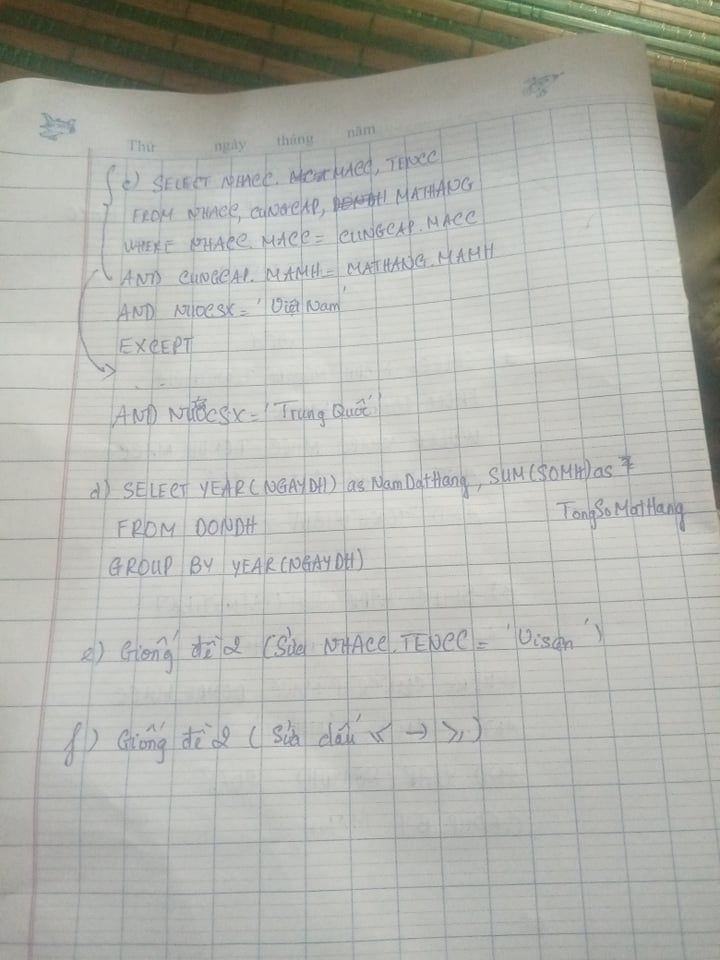 Thứ ngày tháng năm
c) SELECT NHACC. MACC, TENCC
FROM NHACC, CUNGCAP, MATHANG
WHERE NHACC. MACC = CUNGCAP. MACC
AND CUNGCAP. MAMH = MATHANG. MAMH
AND NUOCSX = 'Việt Nam'
EXCEPT
. .
AND NUOCSX = 'Trung Quốc'
d) SELECT YEAR(NGAYDH) as NamDatHang, SUM(SOMH) as
TongSoMatHang
FROM DONDH
GROUP BY YEAR(NGAYDH)
e) Giống đề 2 (Sửa NHACC. TENCC = 'Visan')
f) Giống đề 2 (Sửa dấu ≤ → ≥)